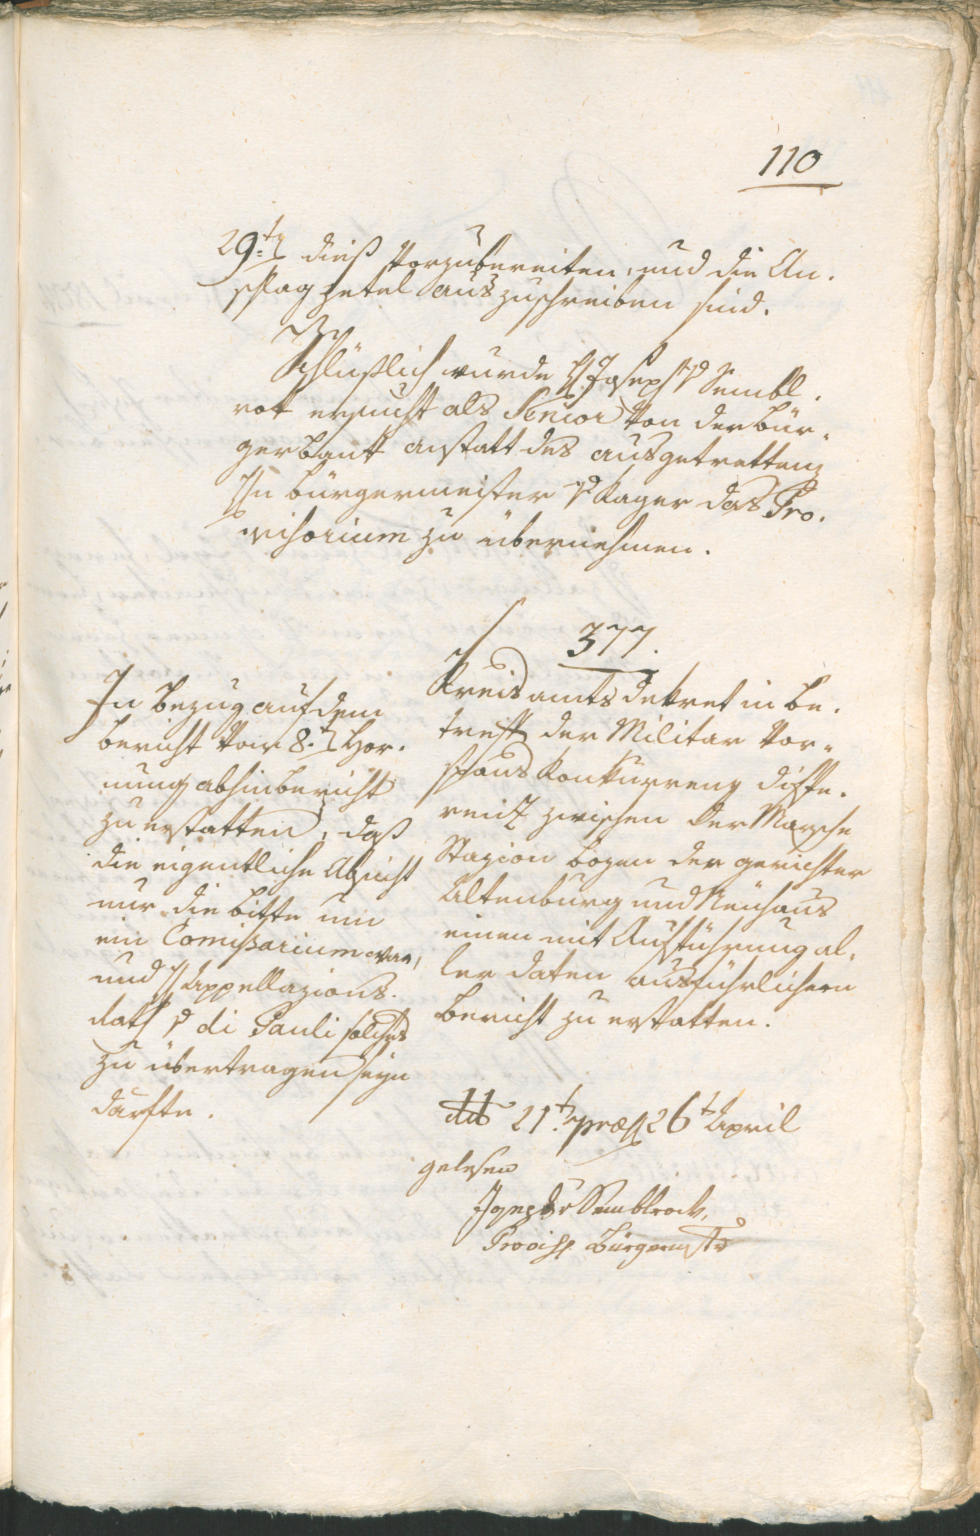 110
29.t dieß vorzubereiten, und die An-
schlag zetel auszuschreiben sind.
Schlüßlich wurde H Joseph v Sembl-
rok ersucht als Senior von der Bür-
gerbank anstatt des ausgetrettenen
Hn bürgermeister v Kager das Pro-
visorium zu übernehmen.
377.
Kreisamts dekret in be-
treff der Militar vor-
spans konkurrenz diffe-
renz zwischen der Marsche
Stazion bozen der gerichter
Altenburg und Neuhaus
einen mit Aufführung al-
ler daten ausführlichern
bericht zu erstatten.
In bezug auf dem
bericht vom 8.t Hor-
nung abhinbericht
zu erstatten, daß
die eigentliche Absicht
nur die bitte um
ein Comißarium war,
und H Appellazions-
rath v di Pauli solches
zu übertragen seyn
dürfte.
ddo 21t. præs 26t April
gelesen
Joseph v Semblrock,
Provis. bürgermstr